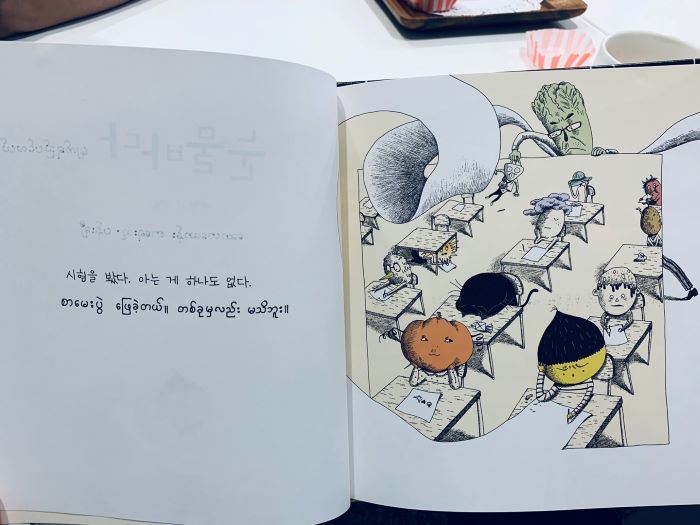 시험을 봤다. 아는 게 하나도 없다.
စာမေးပွဲ ဖြေခဲ့တယ်။ တစ်ခုမှလည်း မသိဘူး။